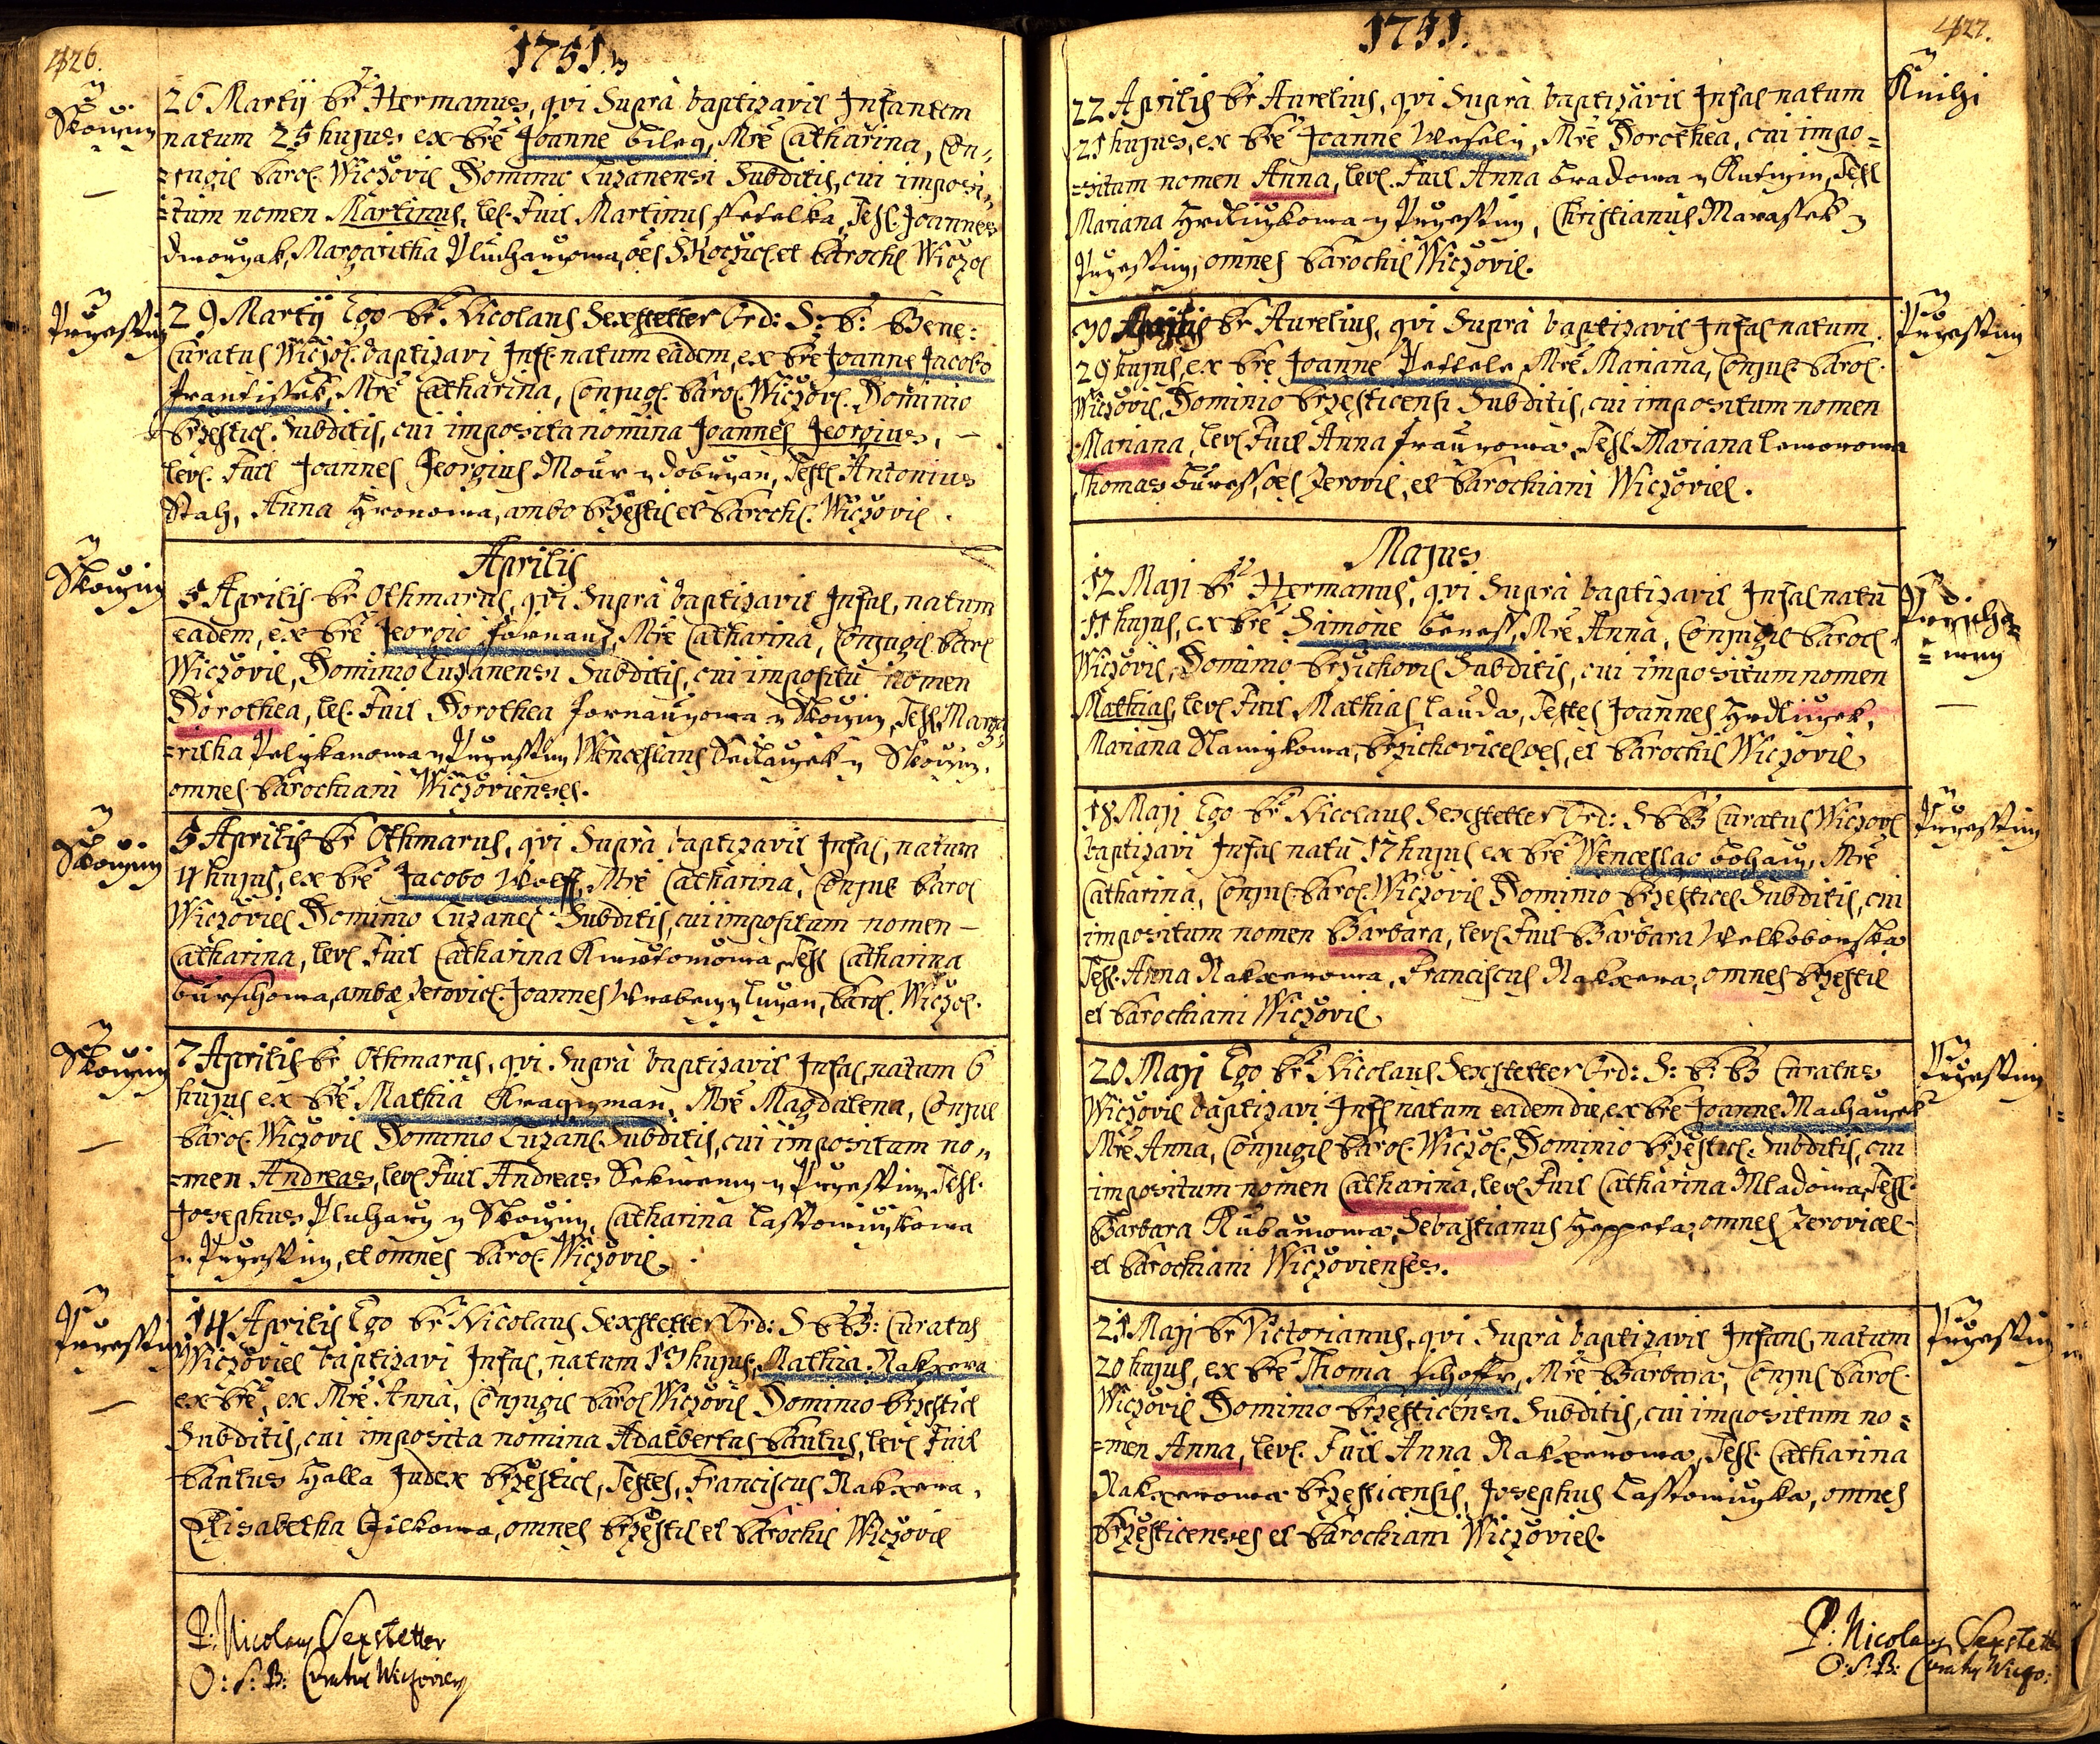 426.
1751.
Skoczicz
26 Martÿ P. Hermanus, qvi Suprà baptizavit Infantem
natum 25 hujus ex Pre Joanne Bileg, Mre Catharina, Con„
=jugib. Paroc. Wiczovi. Dominio Luzanensi Subditis, cui imposi„
=tum nomen Martinus, lev. Fuit Martinus Petelka, Test. Joannes
Dworzak, Margaritha Pluharzowa, oes Skoczic. et Paroch. Wiczov.
Przesstin
29 Martÿ Ego P. Nicolaus Sexstetter Ord: S: P: Bene:
Curatus Wiczov. baptizavi Inf. natum eadem, ex Pre Joanne Jacobo
Frantissek, Mre Catharina, Conjug. Paroc. Wiczov. Dominio
Przestic. Subditis, cui imposita nomina Joannes Georgius,
lev. Fuit Joannes Georgius Mour z Dobrzan, Test. Antonius
Stah, Anna Hronowa, ambo Przestic. et Paroch. Wiczovi.
Aprilis
Skoczicz
5 Aprilis P. Othmarus, qvi Suprà baptizavit Infan. natum
eadem, ex Pre Georgio Fornaus, Mre Catharina, Conjugib. Paroc.
Wiczovi. Dominio Luzanensi Subditis, cui impositu nomen
Dorothea, lev. Fuit Dorothea z Skoczicz, Test. Marga
=ritha Pelikanowa z Przesstin Wenceslaus Sedlaczek z Skoczicz,
omnes Parochiani Wiczovienses.
Skoczicz
5 Aprilis P. Othmarus, qvi Suprà baptizavit Infan. natum
4 hujus, ex Pre Jacobo Wolff, Mre Catharina, Conjug. Paroc.
Wiczovi. Dominio Luzanen. Subditis, cui impositum nomen
Catharina, lev. Fuit Catharina, Test. Catharina
Burschowa, ambæ Zerovic. Joannes Wrabecz z Luzan, Paroc. Wiczov.
Skoczicz
7 Aprilis P. Othmarus, qvi Suprà baptizavit Infan. natum 6
hujus ex Pre Mathia Kragzman, Mre Magdalena, Conjug.
Paroc. Wiczovi. Dominio Luzan. Subditis, cui impositum no„
=men Andreas, lev. Fuit Andreas z Przesstin, Test.
Josephus Pluharz z Skoczicz, Catharina Lasstowiczkowa
z Przesstin, et omnes Paroc. Wiczovi.
Przesstin
14 Aprilis Ego P. Nicolaus Sexstetter Ord: S P B: Curatus
Wiczovi. baptizavi Infan. natum 13 hujus, Mathia Nakxera
ex Pre, ex Mre Anna, Conjugib. Paroc. Wiczovi. Dominio Przestic.
Subditis, cui imposita nomina Adalbertus Paulus, lev. Fuit
Paulus Halla Judex Przestic., Testes, Franciscus Nakxera,
Elisabetha Gilkowa, omnes Przestic. et Paroch. Wiczovi.
P: Nicolaus Sexstetter
O: S: B: Curatus Wiczovien.
1751.
427.
22 Aprilis P. Aurelius, qvi Suprà baptizavit Infan. natum
21 hujus, ex Pre Joanne Wesely, Mre Dorothea, cui impo=
=situm nomen Anna, lev. Fuit Anna Bradowa z, Test.
Mariana Hrdliczkowa z Przesstin, Christianus Marassek z
Przesstin, omnes Parochi. Wiczovi.
Przesstin
30 Aprilis P. Aurelius, qvi Suprà baptizavit Infan. natum
29 hujus, ex Pre Joanne Pettele, Mre Mariana, Conjug. Paroc.
Wiczovi. Dominio Przesticensi Subditis, cui impositum nomen
Mariana, lev. Fuit Anna, Test. Mariana
Thomas Buress, oes Zerovic. et Parochiani Wiczovi.
Majus
12 Maji P. Hermanus, qvi Suprà baptizavit Infan. natu
11 hujus, ex Pre Simone Beness, Mre Anna, Conjugib. Paroc.
Wiczovi. Dominio Przichovi. Subditis, cui impositum nomen
Mathias, lev. Fuit Mathias Lauda, Testes Joannes Hrdliczek,
Mariana Slamykowa, Przichovic. oes, et Parochi. Wiczovi.
Przesstin
18 Maji Ego P. Nicolaus Sexstetter Ord: S P B Curatus Wiczovi.
baptizavi Infan. natu 17 hujus ex Pre Wenceslao Bohacz, Mre
Catharina, Conjug. Paroc. Wiczovi. Dominio Przestic. Subditis, cui
impositum nomen Barbara, lev. Fuit Barbara Welkobowska
Test. Anna Nakxerowa, Franciscus Nakxera, omnes Przestic.
et Parochiani Wiczovi.
Przesstin
20 Maji Ego P. Nicolaus Sexstetter Ord: S: P: B Curatus
Wiczovi. baptizavi Inf. natum eadem die, ex Pre Joanne Machaczek
Mre Anna, Conjugib. Paroc. Wiczov. Dominio Przestic. Subditis, cui
impositum nomen Catharina, lev. Fuit Catharina Mladowa, Test.
Barbara Kubanowa, Sebastianus Heppeta, omnes Zerovic.
et Parochiani Wiczovienses.
Przesstin
21 Maji P. Victorianus, qvi Suprà baptizavit Infan. natum
20 hujus, ex Pre Thoma Schoffr, Mre Barbara, Conjug. Paroc.
Wiczovi. Dominio Przesticensi Subditis, cui impositum no=
=men Anna, lev. Fuit Anna Nakxerowa, Test. Catharina
Nakxerowa Przesticensis, Josephus Lasstowiczka, omnes
Przesticenses et Parochiani Wiczovi.
P: Nicolaus Sexstetter
O: S: B: Curatus Wiczo: